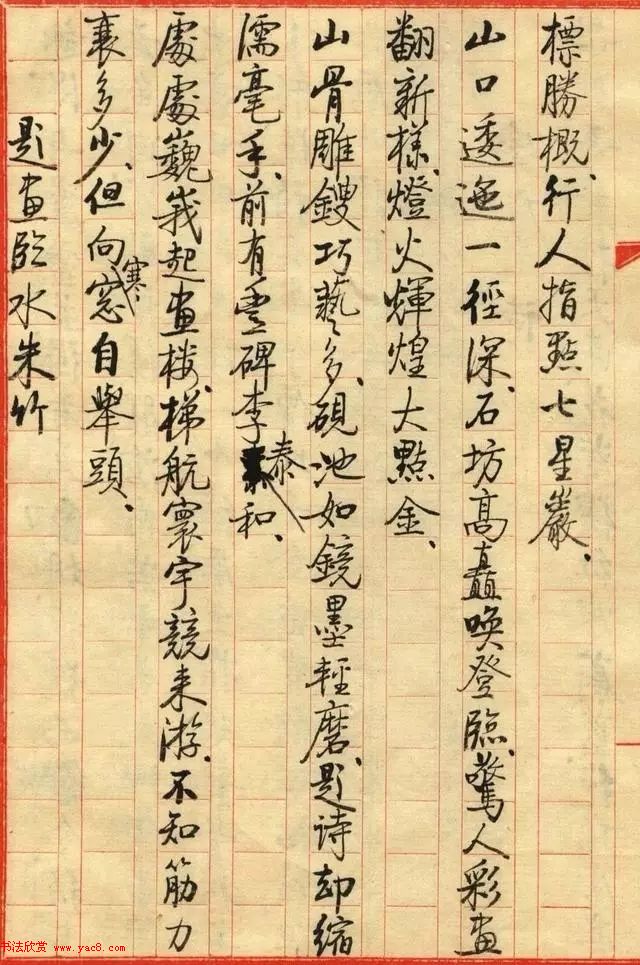 標勝概、行人指點七星巖、
山口逶迤一徑深、石坊高矗喚登臨、驚人彩畫
翻新樣、燈火輝煌大點金、
山骨雕鎪巧藝多、硯池如鏡墨輕磨、題詩却縮
濡毫手、前有豊碑李泰和、
處處巍峩起畫樓、梯航寰宇競来游、不知筋力
衰多少、但向寒窓自舉頭、
題畫臨水朱竹
书法欣赏 www.yac8.com